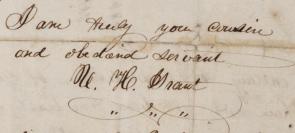 I am truly your cousin
and obediend servant
H. Grant